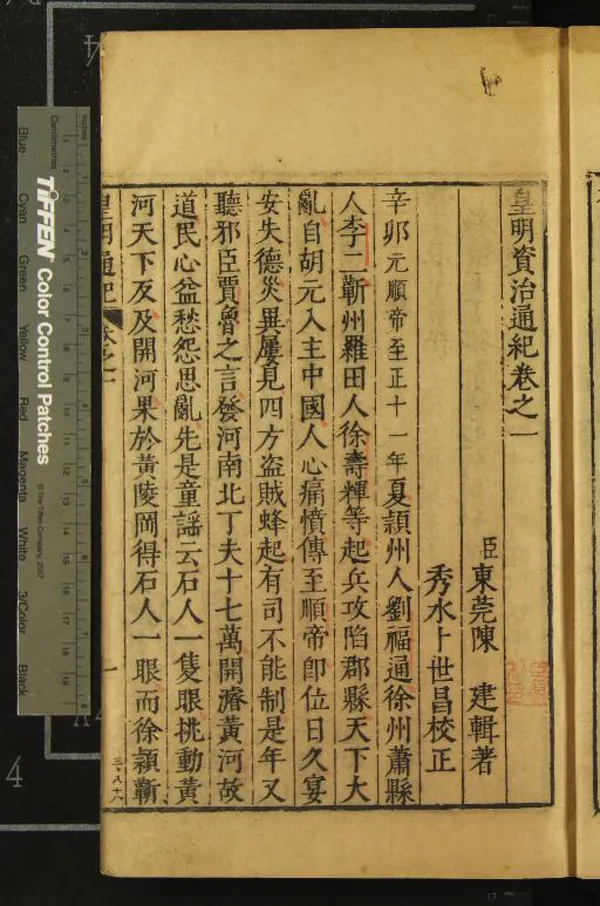 皇明資治通紀卷之一
臣東莞陳 建輯著
秀水卜世昌校正
辛卯元順帝至正十一年夏潁州人劉福通徐州蕭縣
人李二蘄州羅田人徐壽輝等起兵攻陷郡縣天下大
亂自胡元入主中國人心痛憤傳至順帝卽位日久宴
安失德災異屢見四方盜賊蜂起有司不能制是年又
聽邪臣賈魯之言發河南北丁夫十七萬開濬黃河故
道民心益愁怨思亂先是童謡云石人一隻眼挑動黃
河天下反及開河果於黃陵岡得石人一眼而徐潁蘄
皇明通紀 卷之一
一
三、八十六
inches
Centimetres
TIFFEN Color Control Patches
© The Tiffen Company, 2007
Blue
Cyan
Green
Yellow
Red
Magenta
White
3/Color
Black
4
4